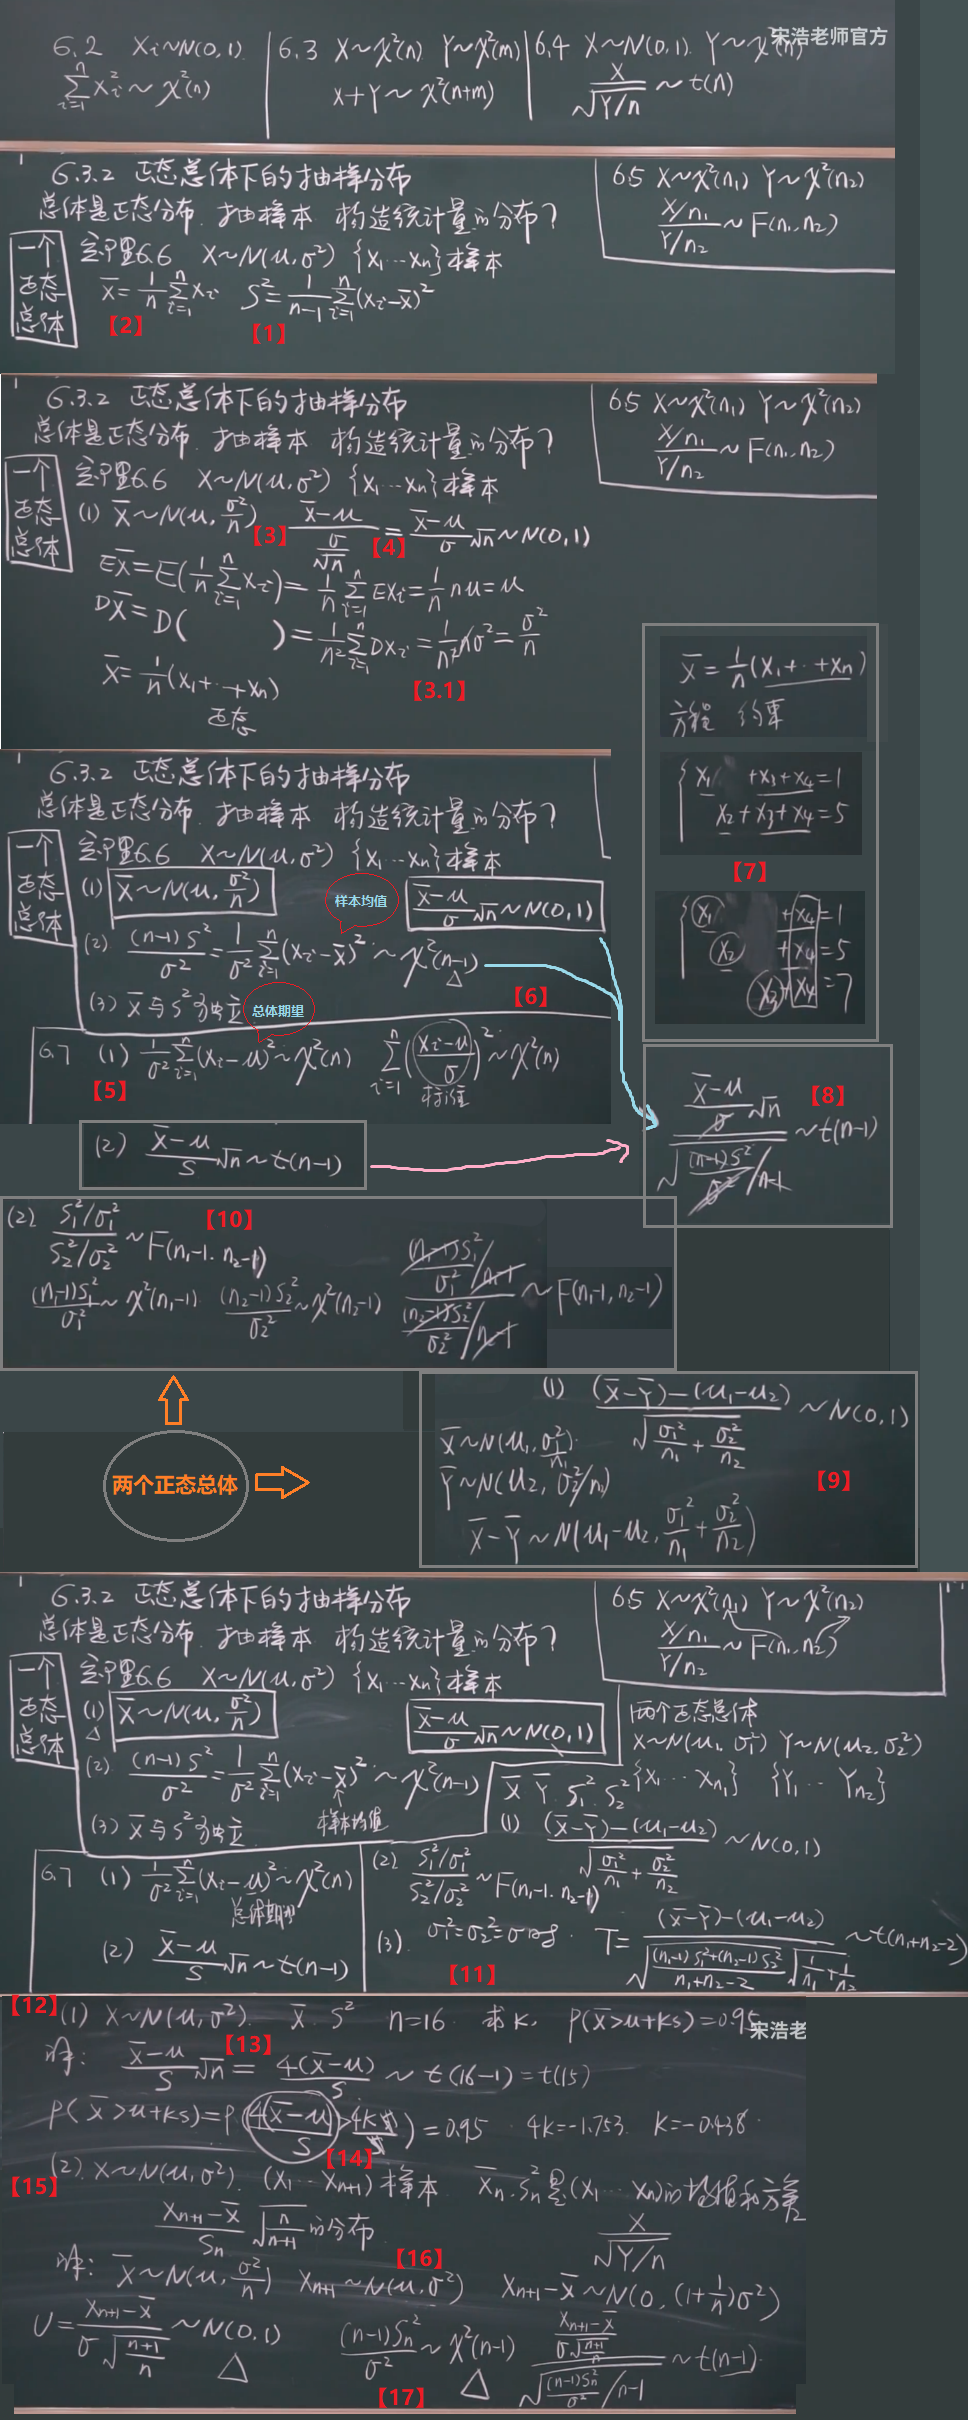 宋浩老师官方
6.2 Xi~N(0,1)
∑_{i=1}^{n} Xi² ~ χ²(n)
6.3 X~χ²(n) Y~χ²(m)
X+Y ~ χ²(n+m)
6.4 X~N(0,1) Y~χ²(n)
X/√(Y/n) ~ t(n)
6.3.2 正态总体下的抽样分布
总体是正态分布.抽样本 构造统计量的分布?
6.5 X~χ²(n₁) Y~χ²(n₂)
(X/n₁)/(Y/n₂) ~ F(n₁,n₂)
一个正态总体
定理6.6 X~N(μ,σ²) {X₁…Xn}样本
X̄=1/n ∑_{i=1}^{n} Xi S²=1/(n-1) ∑_{i=1}^{n}(Xi-X̄)²
【2】 【1】
6.3.2 正态总体下的抽样分布
总体是正态分布.抽样本 构造统计量的分布?
6.5 X~χ²(n₁) Y~χ²(n₂)
(X/n₁)/(Y/n₂) ~ F(n₁,n₂)
一个正态总体
定理6.6 X~N(μ,σ²) {X₁…Xn}样本
(1) X̄~N(μ,σ²/n) 【3】 (X̄-μ)/(σ/√n) 【4】 = (X̄-μ)/σ √n ~ N(0,1)
EX̄=E(1/n ∑_{i=1}^{n} Xi)=1/n ∑_{i=1}^{n} EXi=1/n nμ=μ
DX̄=D( )=1/n² ∑_{i=1}^{n} DXi=1/n² nσ²=σ²/n
X̄=1/n(X₁+…+Xn)
正态
【3.1】
X̄=1/n(X₁+…+Xn)
方程 约束
X₁ +X₃+X₄=1
X₂+X₃+X₄=5
【7】
X₁ +X₄=1
X₂ +X₄=5
X₃+X₄=7
6.3.2 正态总体下的抽样分布
总体是正态分布.抽样本 构造统计量的分布?
一个正态总体
定理6.6 X~N(μ,σ²) {X₁…Xn}样本
(1) X̄~N(μ,σ²/n) 样本均值 (X̄-μ)/σ √n~N(0,1)
(2) (n-1)S²/σ²=1/σ² ∑_{i=1}^{n}(Xi-X̄)² ~ χ²(n-1)
【6】
(3) X̄与S²独立 总体期望
6.7 (1) 1/σ² ∑_{i=1}^{n}(Xi-μ)²~χ²(n) ∑_{i=1}^{n}((Xi-μ)/σ)²~χ²(n)
【5】 标准
(2) (X̄-μ)/S √n~t(n-1)
((X̄-μ)/σ √n)/√((n-1)S²/σ²/n-1) ~t(n-1)
【8】
(2) (S₁²/σ₁²)/(S₂²/σ₂²) ~ F(n₁-1,n₂-1) 【10】
(n₁-1)S₁²/σ₁² ~ χ²(n₁-1) (n₂-1)S₂²/σ₂² ~ χ²(n₂-1) ((n₁-1)S₁²/σ₁²/n₁-1)/((n₂-1)S₂²/σ₂²/n₂-1) ~ F(n₁-1,n₂-1)
两个正态总体
(1) ((X̄-Ȳ)-(μ₁-μ₂))/√(σ₁²/n₁+σ₂²/n₂) ~N(0,1)
X̄~N(μ₁,σ₁²/n₁)
Ȳ~N(μ₂,σ₂²/n₂)
X̄-Ȳ~N(μ₁-μ₂,σ₁²/n₁+σ₂²/n₂)
【9】
6.3.2 正态总体下的抽样分布
总体是正态分布.抽样本 构造统计量的分布?
6.5 X~χ²(n₁) Y~χ²(n₂)
(X/n₁)/(Y/n₂) ~ F(n₁,n₂)
一个正态总体
定理6.6 X~N(μ,σ²) {X₁…Xn}样本
(1) X̄~N(μ,σ²/n) (X̄-μ)/σ √n~N(0,1)
(2) (n-1)S²/σ²=1/σ² ∑_{i=1}^{n}(Xi-X̄)² ~ χ²(n-1)
样本均值
(3) X̄与S²独立
两个正态总体
X~N(μ₁,σ₁²) Y~N(μ₂,σ₂²)
X̄ Ȳ S₁² S₂² {X₁…Xn₁} {Y₁…Yn₂}
(1) ((X̄-Ȳ)-(μ₁-μ₂))/√(σ₁²/n₁+σ₂²/n₂) ~N(0,1)
6.7 (1) 1/σ² ∑_{i=1}^{n}(Xi-μ)²~χ²(n)
总体期望
(2) (X̄-μ)/S √n~t(n-1)
(2) (S₁²/σ₁²)/(S₂²/σ₂²) ~F(n₁-1,n₂-1)
(3) σ₁²=σ₂²=σ²时. T=((X̄-Ȳ)-(μ₁-μ₂))/(√(((n₁-1)S₁²+(n₂-1)S₂²)/(n₁+n₂-2)) √(1/n₁+1/n₂)) ~t(n₁+n₂-2)
【11】
【12】 (1) X~N(μ,σ²). X̄ S² n=16 求K, P(X̄>μ+KS)=0.95
宋浩老
【13】
解: (X̄-μ)/S √n=4(X̄-μ)/S ~ t(16-1)=t(15)
P(X̄>μ+KS)=P(4(X̄-μ)/S>4KS/S)=0.95 4K=-1.753 K=-0.438
【14】
【15】 (2) X~N(μ,σ²). (X₁…Xn+1)样本 X̄n.Sn²是(X₁…Xn)的均值和方差
(Xn+1-X̄)/Sn √(n/(n+1)) 的分布 X/√(Y/n)
【16】
解: X̄~N(μ,σ²/n) Xn+1~N(μ,σ²) Xn+1-X̄~N(0,(1+1/n)σ²)
U=(Xn+1-X̄)/(σ√((n+1)/n)) ~N(0,1) (n-1)Sn²/σ² ~χ²(n-1) ((Xn+1-X̄)/(σ√((n+1)/n)))/√((n-1)Sn²/σ²/n-1) ~t(n-1)
【17】